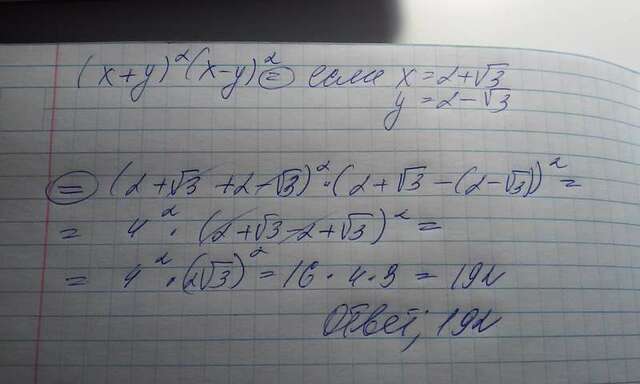 (x+y)²(x-y)² = если x=2+√3
y=2-√3
= (2+√3+2-√3)²·(2+√3-(2-√3))² =
= 4²·(2+√3-2+√3)² =
= 4²·(2√3)² = 16·4·3 = 192
Ответ; 192